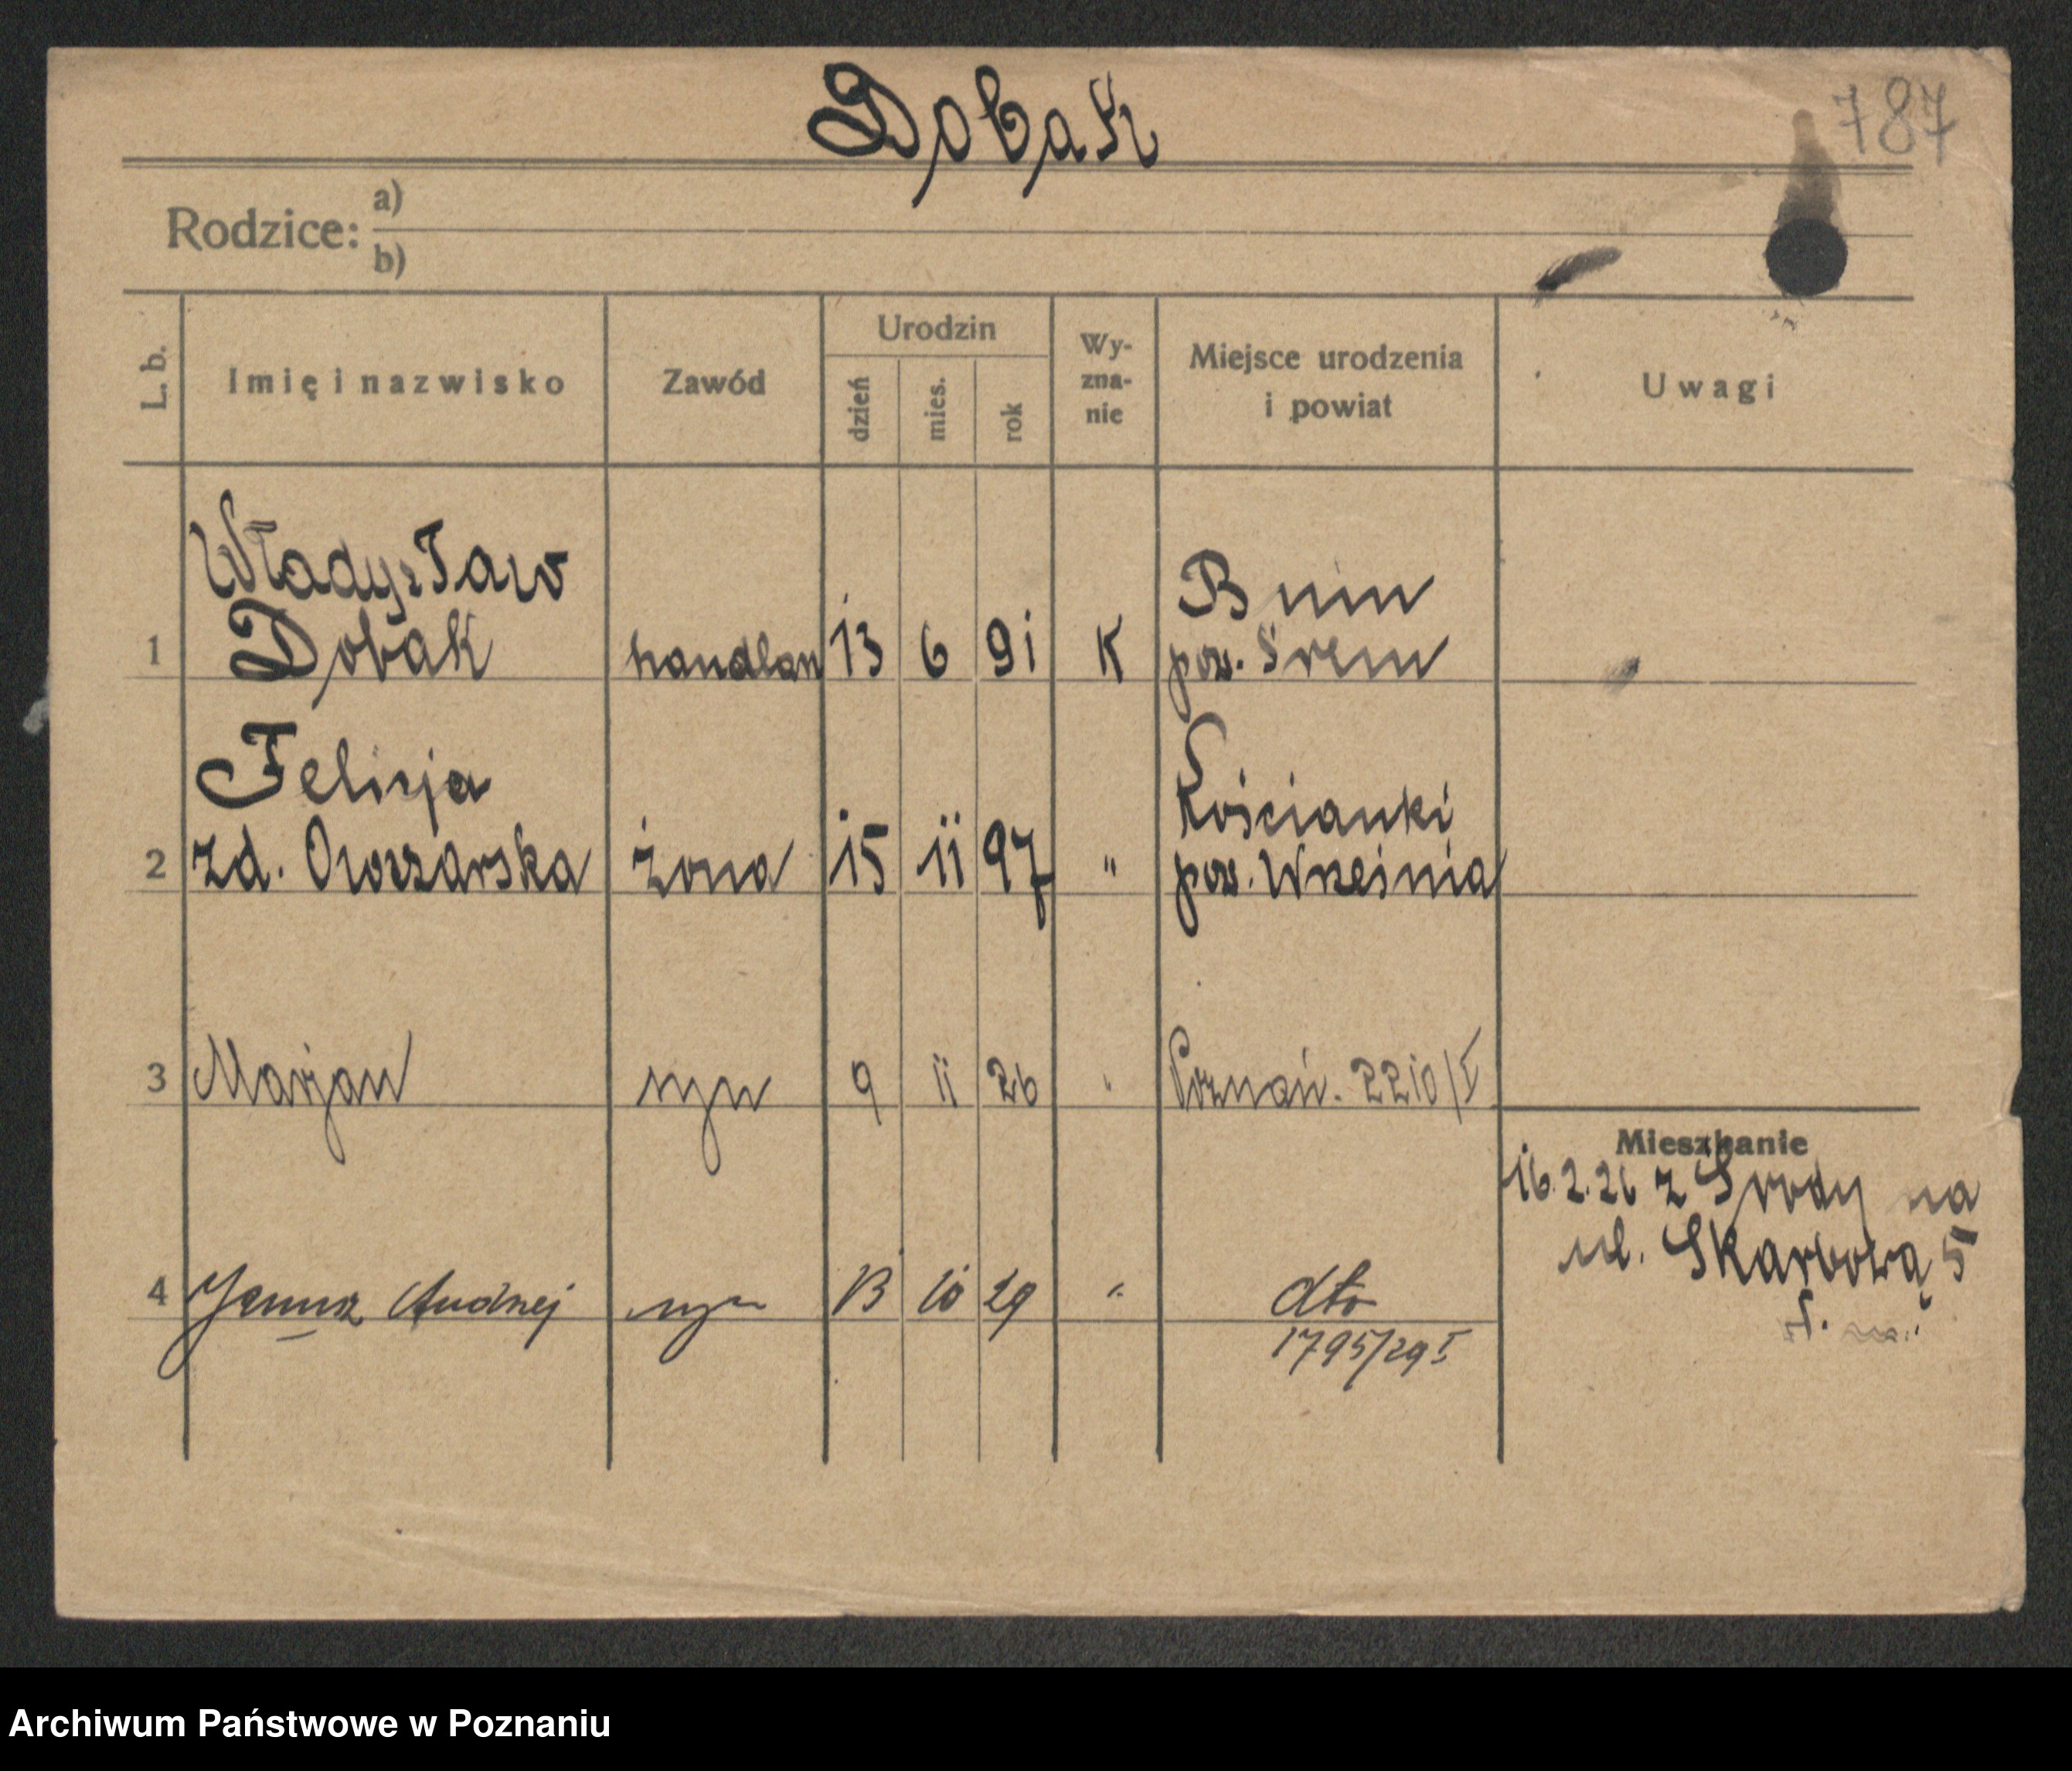 Dobak
787
Rodzice: a)
b)
L. b. Imię i nazwisko Zawód Urodzin dzień mies. rok Wy-zna-nie Miejsce urodzenia i powiat Uwagi
Władysław
Dobak
1 handlarz 13 6 91 K
Bnin
pow. Śrem
Felicja
2 zd. Owczarska żona 15 11 97 "
Kościanki
pow. Września
3 Marjan syn 9 11 26 " Poznań. 2210/I
Mieszkanie
16.2.26 z Środy na
ul. Skarbową 5
4 Janusz Andrzej syn 13 10 29 " dto
1795/29 I
Archiwum Państwowe w Poznaniu